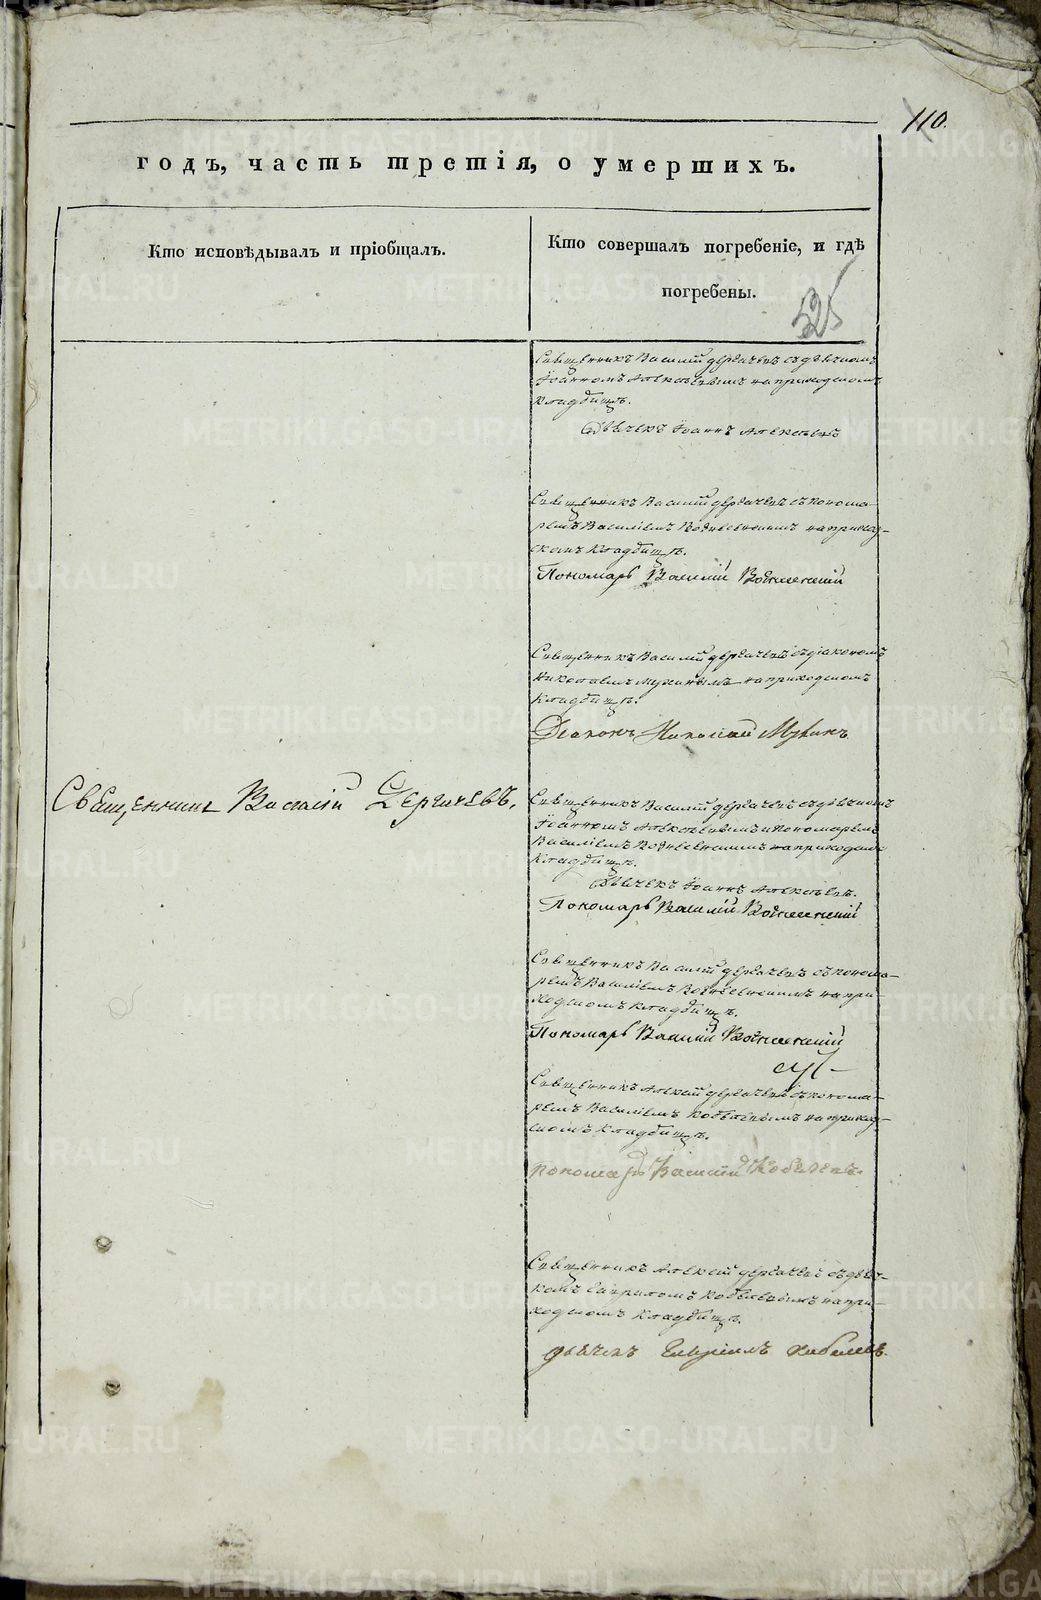 110.
годъ, часть третія, о умершихъ.
Кто исповѣдывалъ и пріобщалъ.
Кто совершалъ погребеніе, и гдѣ
погребены.
525
Священникъ Василій Дергачевъ съ дьячкомъ
Іоанномъ Алексѣевымъ на приходскомъ
кладбищѣ.
Дьячекъ Іоаннъ Алексѣевъ
Священникъ Василій Дергачевъ съ понома-
ремъ Василіемъ Вознесенскимъ на приход-
скомъ кладбищѣ.
Пономарь Василій Вознесенскій
Священникъ Василій Дергачевъ съ діакономъ
Николаемъ Мухинымъ на приходскомъ
кладбищѣ.
Діаконъ Николай Мухинъ
Священникъ Василій Дергачевъ.
Священникъ Василій Дергачевъ съ дьячкомъ
Іоанномъ Алексѣевымъ и пономаремъ
Василіемъ Вознесенскимъ на приходском
кладбищѣ.
Дьячекъ Іоаннъ Алексѣевъ.
Пономарь Василій Вознесенскій
Священникъ Василій Дергачевъ съ понома-
ремъ Василіемъ Вознесенскимъ на при-
ходскомъ кладбищѣ.
Пономарь Василій Вознесенскій
Священникъ Алексѣй Дергачевъ съ понома-
ремъ Василіемъ Кобелевымъ на приход-
скомъ кладбищѣ.
пономарь Василій Кобелевъ.
Священникъ Алексѣй Дергачевъ съ дьяч-
комъ Гавриломъ Кобелевымъ на при-
ходскомъ кладбищѣ.
дьячекъ Гавріилъ Кобелевъ.
METRIKI.GASO-URAL.RU